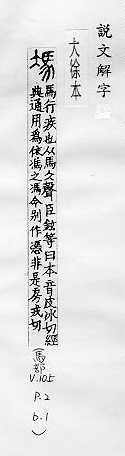 説文解字
大徐本
馬行疾也从馬冫聲臣鉉等曰本音皮冰切經
典通用爲依馮之馮今别作憑非是房戎切
(馬部
V.105
P.2
b.1
)